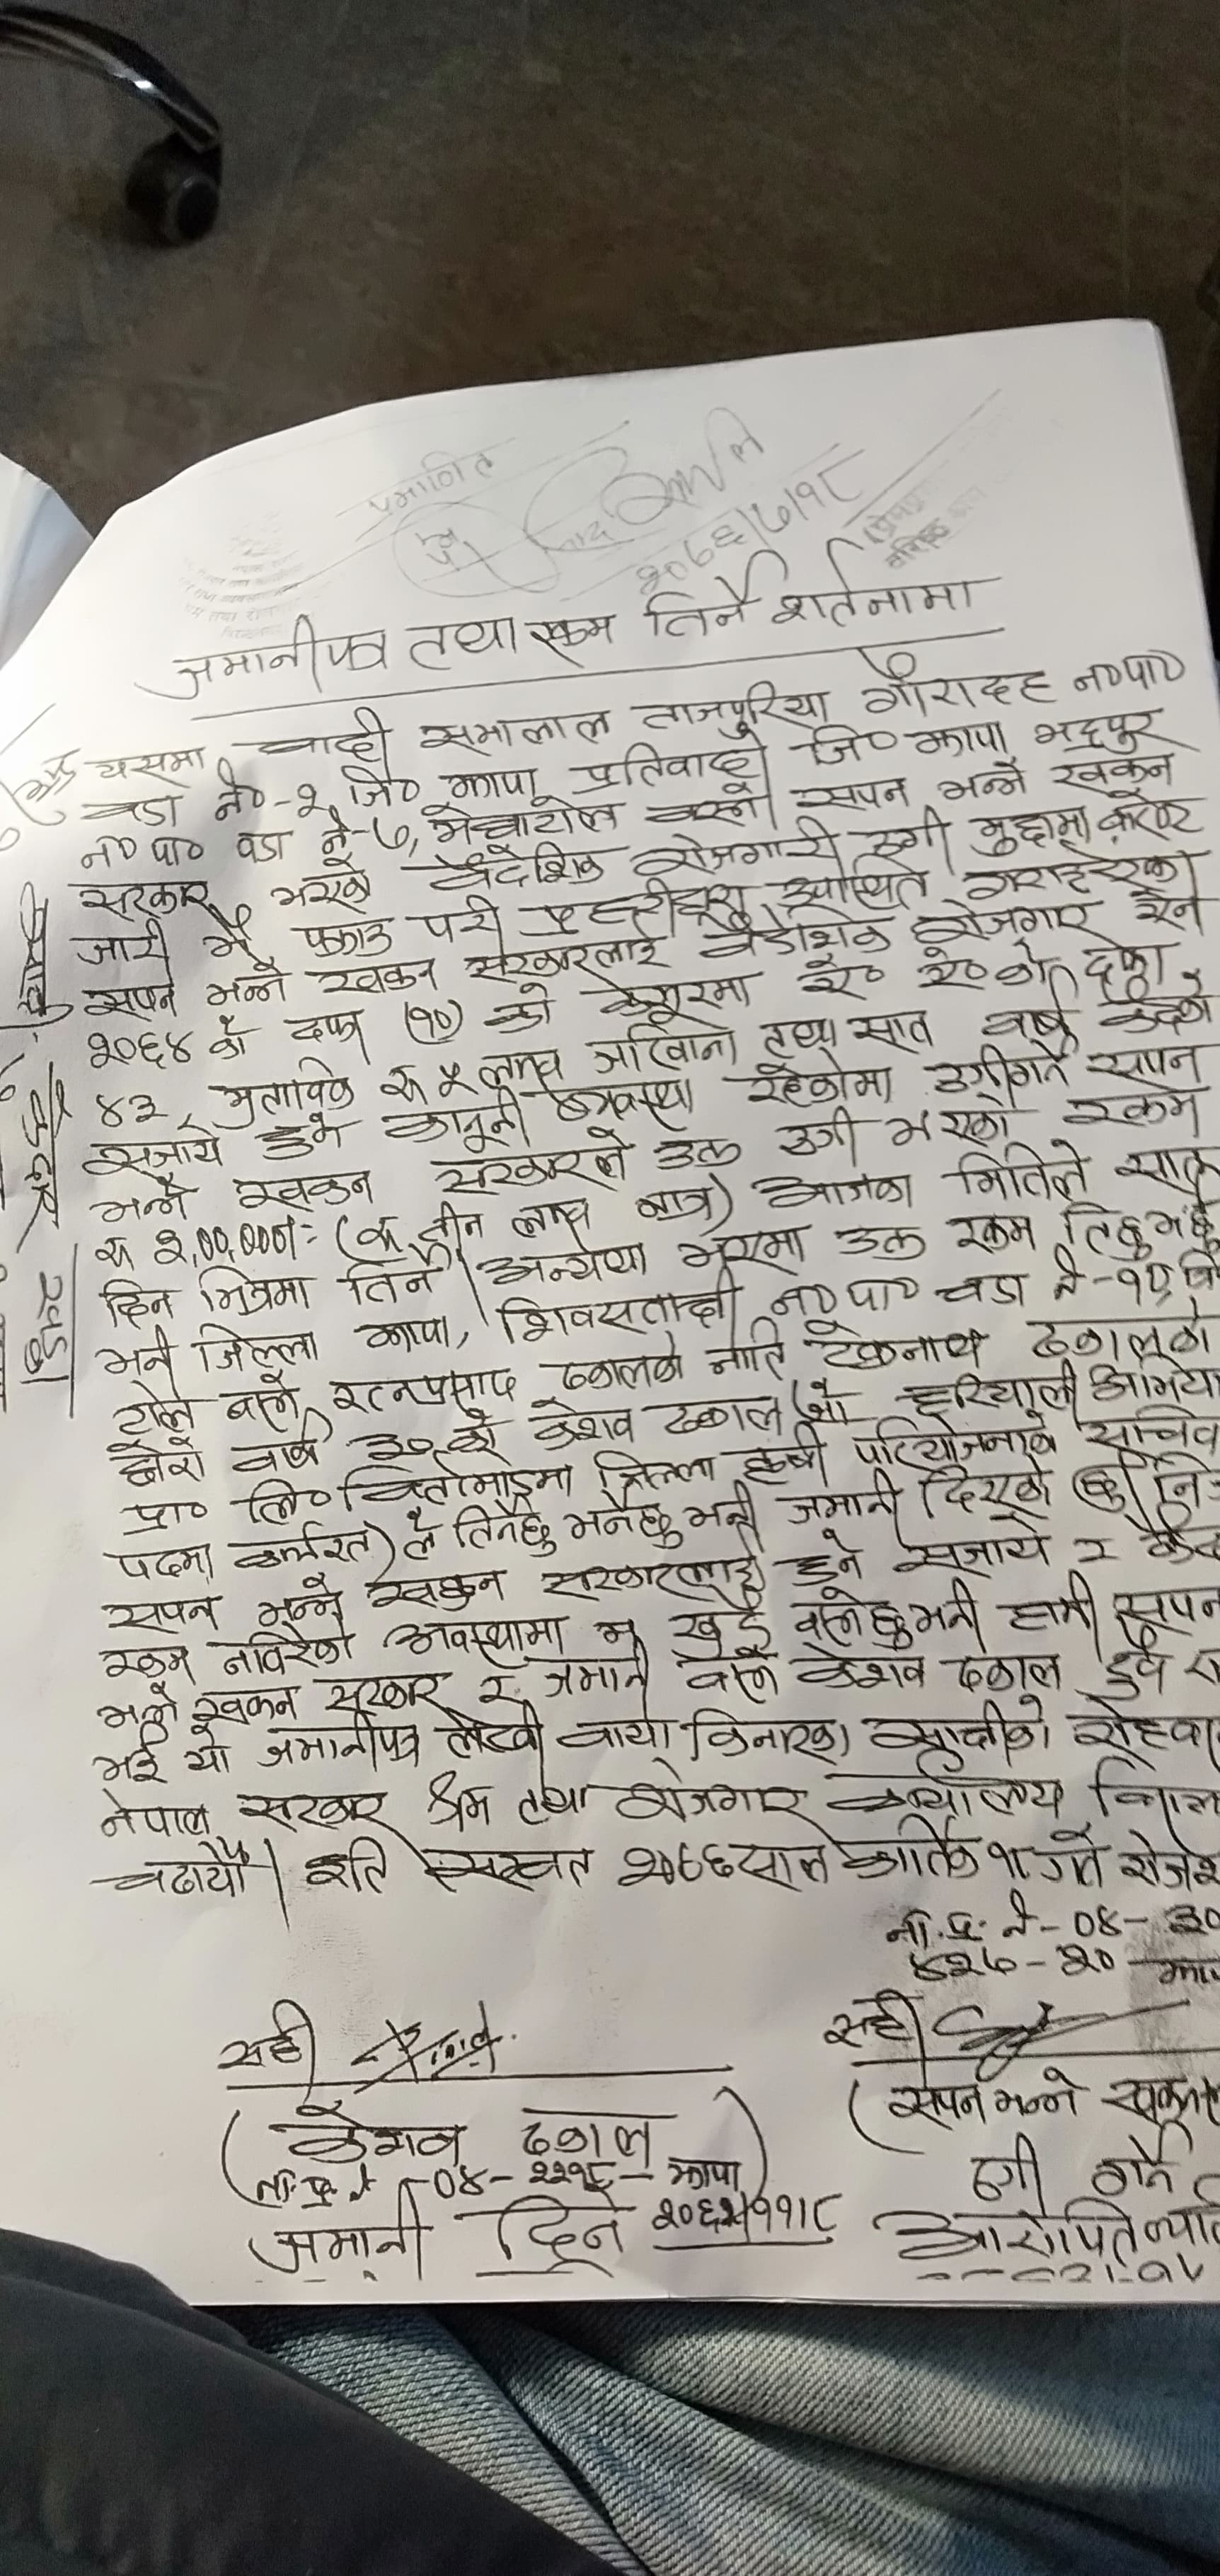 प्रमाणित
२०७६/७/१८
जमानीपत्र तथा रकम तिर्ने शर्तनामा
यसमा वादी समालाल ताजपुरिया गौरादह न०पा०
वडा नं०-२ जि० झापा प्रतिवादी जि० झापा भद्रपुर
न०पा० वडा नं-७, मेची टोल बस्ने सपन भन्ने खकन
सरकार भएको वैदेशिक रोजगारी ठगी मुद्दामा
जारी भै पक्राउ परी प्रहरीद्वारा उपस्थित गराइएका
सपन भन्ने खकन सरकारलाई वैदेशिक रोजगार ऐन
२०६४ को दफा (१०) को कसूरमा ऐ० ऐ० को दफा
४३ मुताविक रु ५ लाख जरिवाना तथा सात वर्ष कैदको
सजाय हुने कानूनी व्यवस्था रहेकोमा ठगी गर्ने सपन
भन्ने खकन सरकारले उक्त ठगी भएको रकम
रु ३,००,०००/- (रु तीन लाख मात्र) आजका मितिले सात
दिन भित्रमा तिर्ने अन्यथा भएमा उक्त रकम तिर्छु भन्ने
भनी जिल्ला झापा, शिवसताक्षी न०पा० वडा नं-११
टोल बस्ने रत्नप्रसाद ढकालको नाति टेकनाथ ढकालको
छोरो वर्ष ३० को केशव ढकाल (यो हरियाली
प्रा० लि० विर्तामोडमा जिल्ला कृषी परियोजनाको सचिव
पदमा कार्यरत) ले तिर्नेछु भर्नेछु भनी जमानी दिएको छु निज
सपन भन्ने खकन सरकारलाई हुने सजाय र कैद
रकम नतिरेको अवस्थामा म खुद बस्नेछु भनी हामी सपन
भन्ने खकन सरकार र जमानी बस्ने केशव ढकाल दुवै
भई यो जमानीपत्र लेखी बायाँ किनारका साक्षीको रोहवर
नेपाल सरकार श्रम तथा रोजगार कार्यालय
चढायौं । इति सम्वत २०७६ साल कार्तिक १८ गते रोज
ना.प्र. नं-०४-३०
४२७-२०
सही
सही
(केशव ढकाल
(सपन भन्ने खकन
ना.प्र.नं-०४-२२१८-झापा)
ठगी गर्ने
जमानी दिने
आरोपित